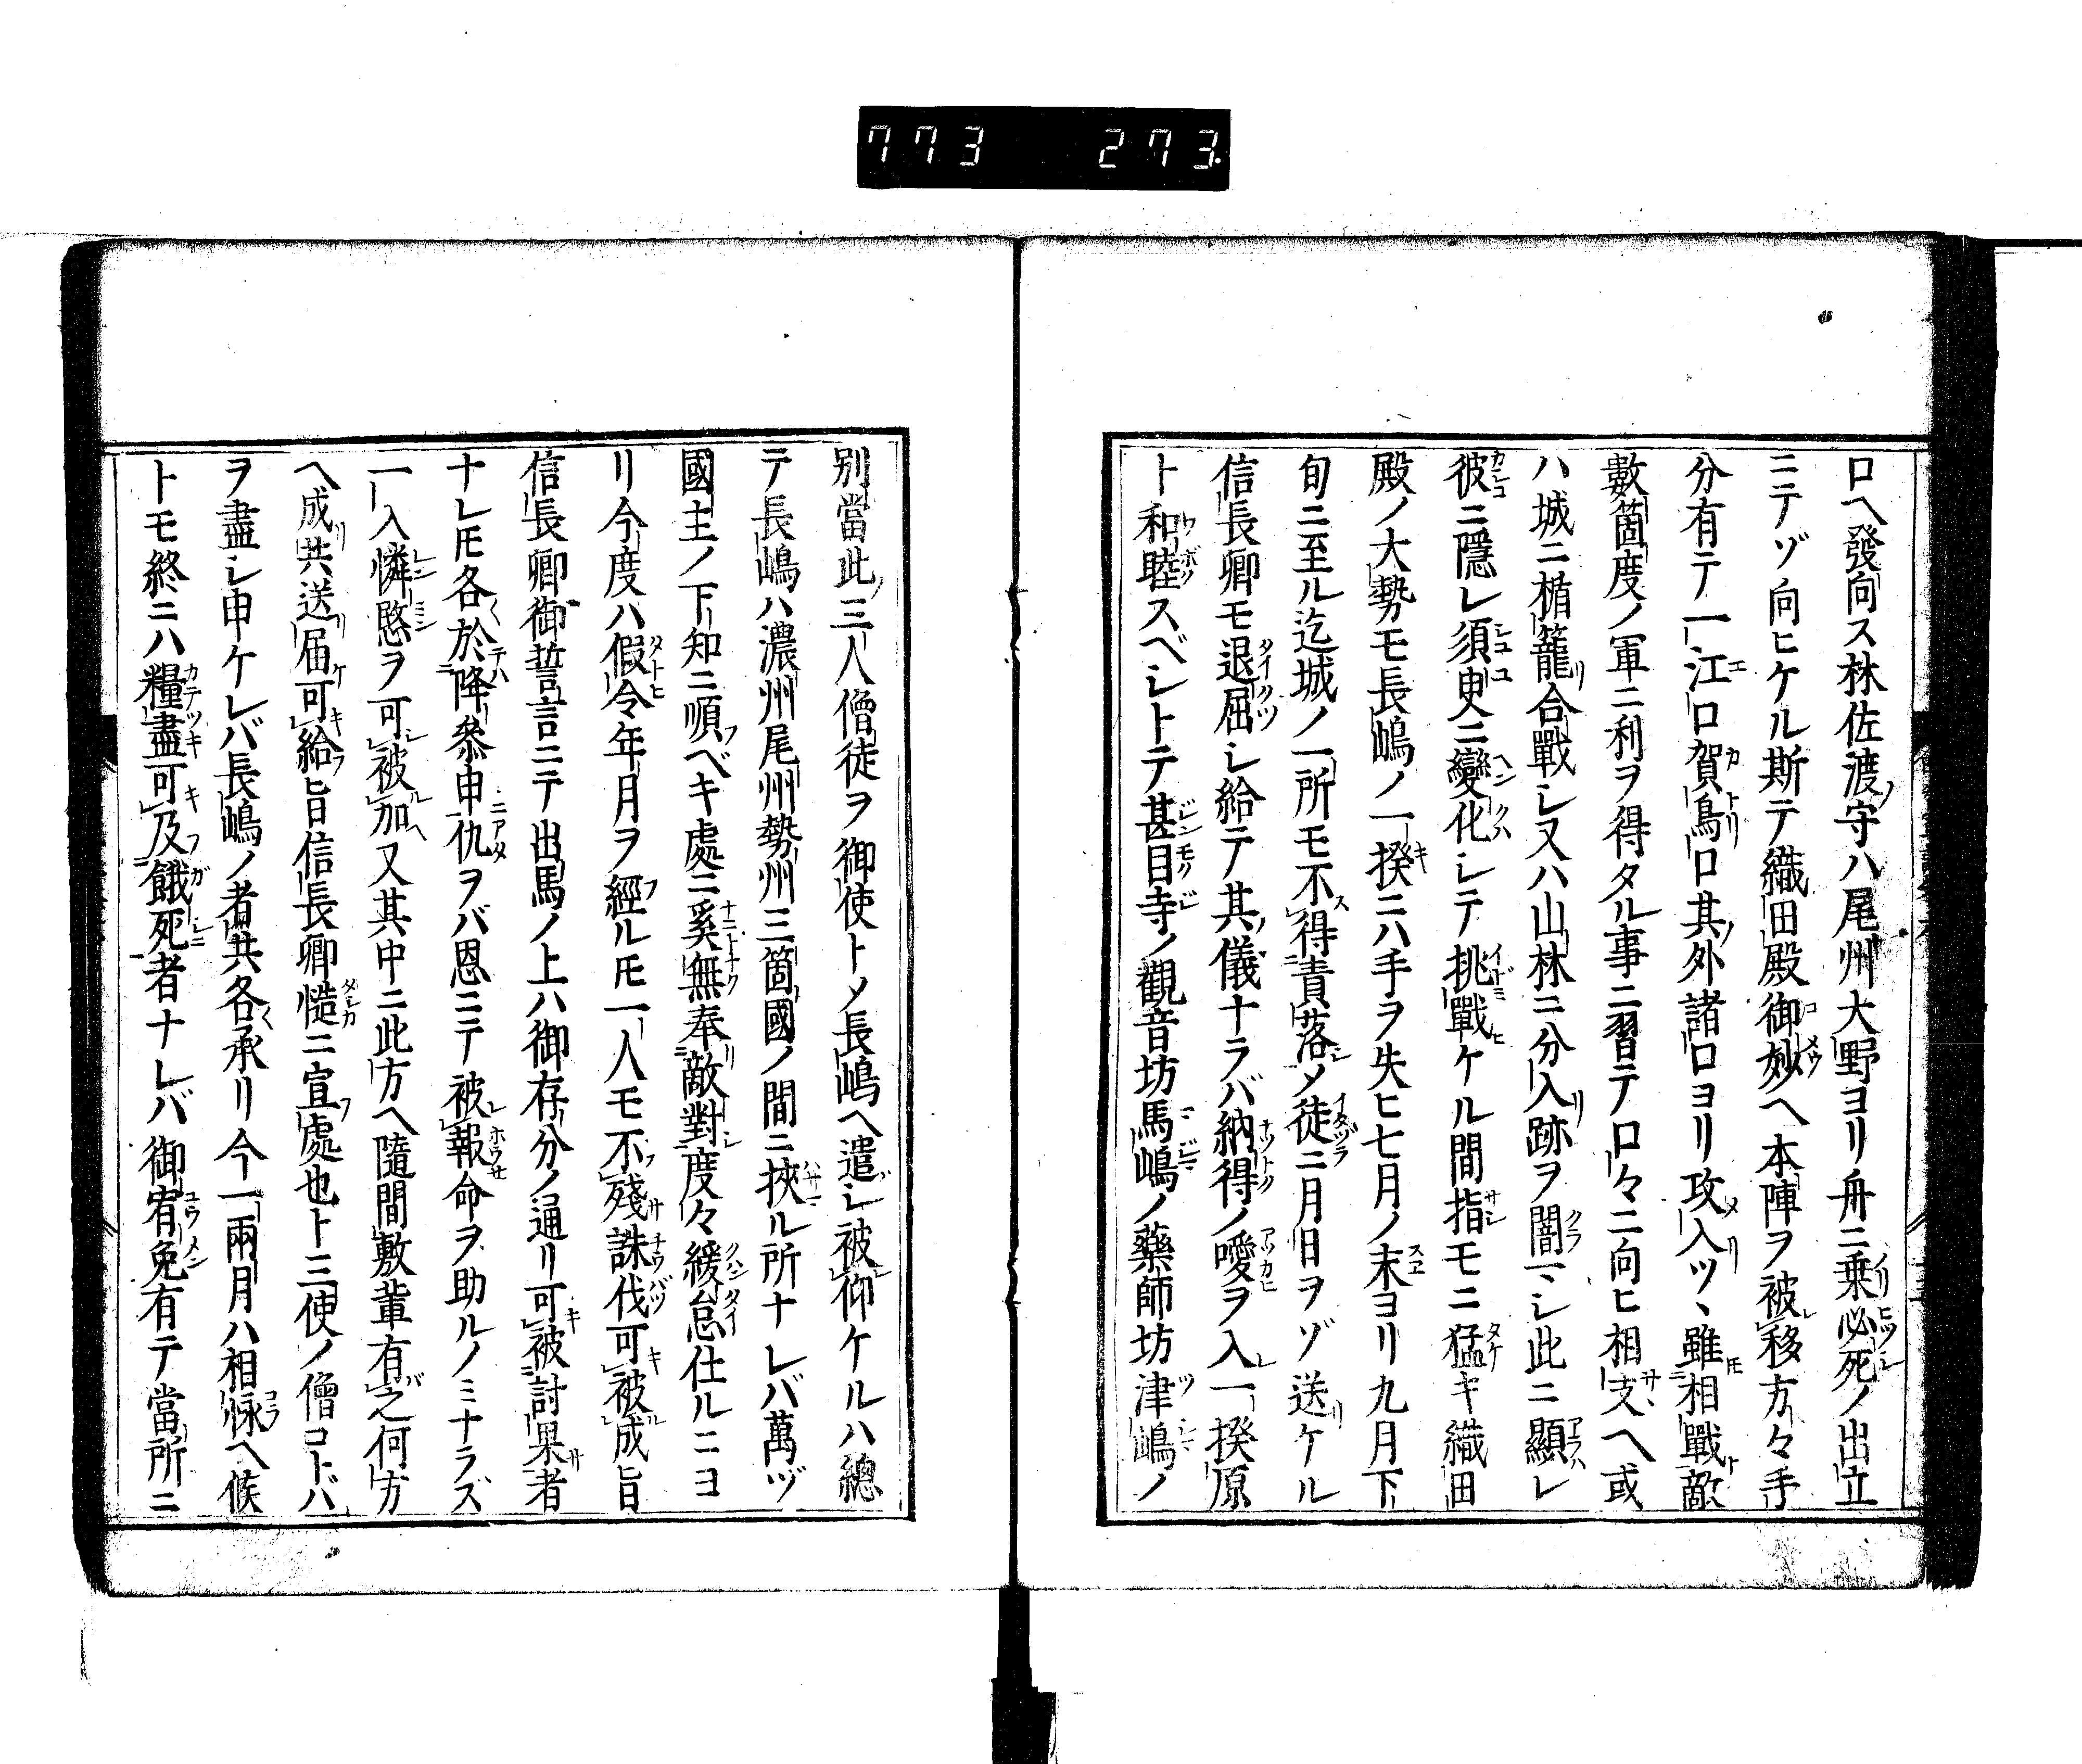 773 273
口ヘ發向ス林佐渡ノ守ハ尾州大野ヨリ舟ニ乗必死ノ出立
ニテゾ向ヒケル斯テ織田殿御妙ヘ本陣ヲ被レ移方々手
分有テ一江口賀鳥口其ノ外諸口ヨリ攻入ツヽ雖相戰敵
數箇度ノ軍ニ利ヲ得タル事ニ習テ口々ニ向ヒ相支ヘ或
ハ城ニ楯籠合戰シ又ハ山林ニ分入跡ヲ闇マシ此ニ顯レ
彼ニ隱レ須臾ニ變化シテ挑戰ケル間指モニ猛キ織田
殿ノ大勢モ長嶋ノ一揆ニハ手ヲ失ヒ七月ノ末ヨリ九月下
旬ニ至ル迄城ノ一所モ不得責落メ徒ニ月日ヲゾ送ケル
信長卿モ退屈シ給テ其ノ儀ナラバ納得ノ噯ヲ入レ一揆原
ト和睦スベシトテ甚目寺ノ觀音坊馬嶋ノ藥師坊津嶋ノ
別當此ノ三人僧徒ヲ御使トメ長嶋ヘ遣シ被仰ケルハ總
テ長嶋ハ濃州尾州勢州三箇國ノ間ニ挾ル所ナレバ萬ヅ
國主ノ下知ニ順ベキ處ニ奚無奉敵對度々緩怠仕ルニヨ
リ今度ハ假令年月ヲ經ルモ一人モ不殘誅伐可被成旨
信長卿御誓言ニテ出馬ノ上ハ御存分ノ通リ可被討果者
ナレモ各於降參申仇ヲバ恩ニテ被報命ヲ助ルノミナラズ
一入憐愍ヲ可被加又其中ニ此方ヘ隨間敷輩有之何方
ヘ成共送届可給旨信長卿慥ニ宣處也ト三使ノ僧コトバ
ヲ盡シ申ケレバ長嶋ノ者共各承リ今一兩月ハ相怺ヘ候
トモ終ニハ糧盡可及餓死者ナレバ御宥免有テ當所ニ